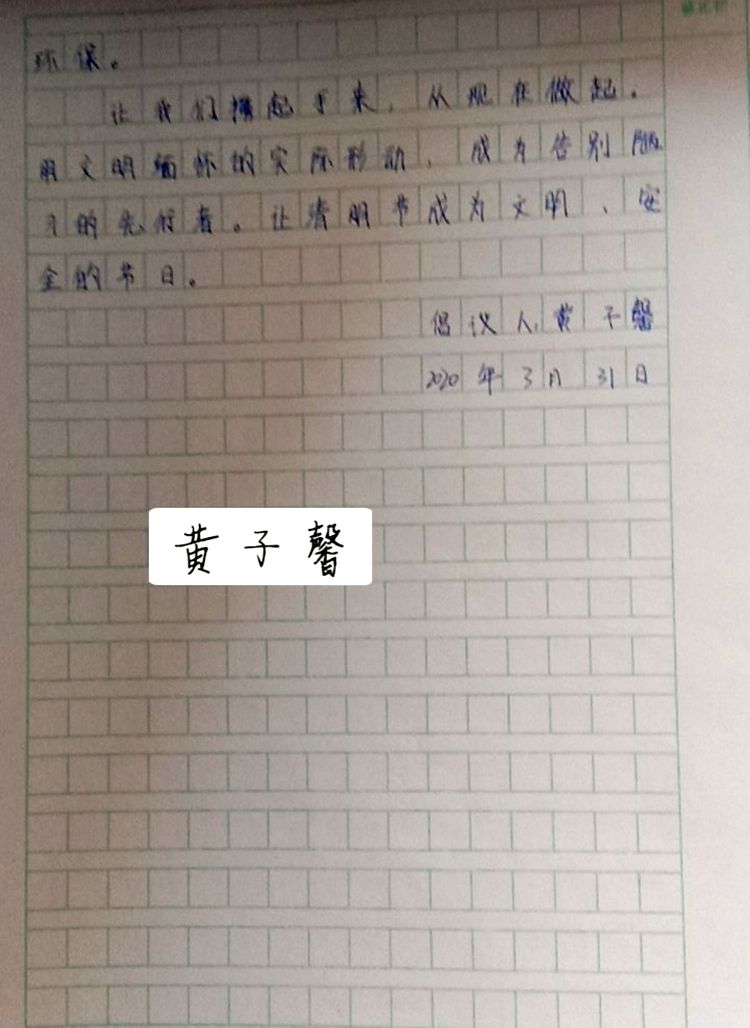 环保。
让我们携起手来，从现在做起。
用文明缅怀的实际形动，成为告别陋
习的先行者。让清明节成为文明、安
全的节日。
倡议人：黄子馨
2020年3月31日
黄子馨